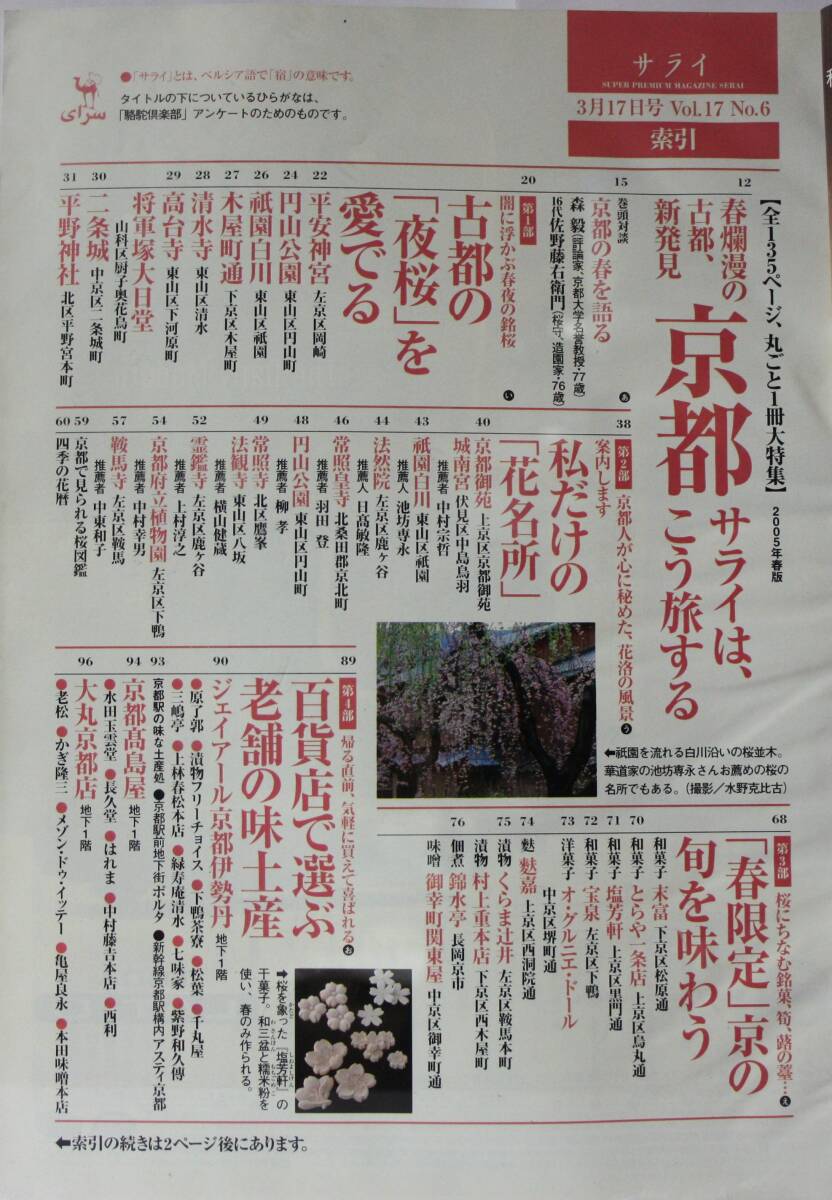 サライ
SUPER PREMIUM MAGAZINE SERAI
3月17日号 Vol.17 No.6
索引
●「サライ」とは、ペルシア語で「宿」の意味です。
タイトルの下についているひらがなは、
「駱駝倶楽部」アンケートのためのものです。
سرای
【全135ページ、丸ごと1冊大特集】 2005年春版
12
春爛漫の
古都、
新発見
京都
サライは、
こう旅する
15
巻頭対談
京都の春を語る あ
森 毅(評論家、京都大学名誉教授・77歳)
16代佐野藤右衛門(桜守、造園家・76歳)
20
第1部
闇に浮かぶ春夜の銘桜 い
古都の
「夜桜」を
愛でる
22 平安神宮 左京区岡崎
24 円山公園 東山区円山町
26 祇園白川 東山区祇園
27 木屋町通 下京区木屋町
28 清水寺 東山区清水
29 高台寺 東山区下河原町
将軍塚大日堂
山科区厨子奥花鳥町
30 二条城 中京区二条城町
31 平野神社 北区平野宮本町
38
第2部 京都人が心に秘めた、花洛の風景 う
案内します
私だけの
「花名所」
40 京都御苑 上京区京都御苑
城南宮 伏見区中島鳥羽
推薦者 中村宗哲
43 祇園白川 東山区祇園
推薦人 池坊専永
44 法然院 左京区鹿ヶ谷
推薦人 日高敏隆
46 常照皇寺 北桑田郡京北町
推薦者 羽田 登
48 円山公園 東山区円山町
推薦者 柳 孝
49 常照寺 北区鷹峯
法観寺 東山区八坂
推薦者 横山健蔵
52 霊鑑寺 左京区鹿ヶ谷
推薦者 上村淳之
54 京都府立植物園 左京区下鴨
推薦者 中村幸男
57 鞍馬寺 左京区鞍馬
推薦者 中東和子
59 京都で見られる桜図鑑
60 四季の花暦
←祇園を流れる白川沿いの桜並木。
華道家の池坊専永さんお薦めの桜の
名所でもある。(撮影/水野克比古)
68
第3部 桜にちなむ銘菓、筍、蕗の薹… え
「春限定」京の
旬を味わう
和菓子 末富 下京区松原通
70 和菓子 とらや一条店 上京区烏丸通
71 和菓子 塩芳軒 上京区黒門通
72 和菓子 宝泉 左京区下鴨
73 洋菓子 オ・グルニエ・ドール
中京区堺町通
74 麩 麩嘉 上京区西洞院通
75 漬物 くらま辻井 左京区鞍馬本町
漬物 村上重本店 下京区西木屋町
76 佃煮 錦水亭 長岡京市
味噌 御幸町関東屋 中京区御幸町通
89
第4部 帰る直前、気軽に買えて喜ばれる お
百貨店で選ぶ
老舗の味土産
90 ジェイアール京都伊勢丹 地下1階
●原了郭 ●漬物フリーチョイス ●下鴨茶寮 ●松葉 ●千丸屋
●三嶋亭 ●上林春松本店 ●緑寿庵清水 ●七味家 ●紫野和久傳
93 京都駅の味な土産処 ●京都駅前地下街ポルタ ●新幹線京都駅構内アスティ京都
94 京都髙島屋 地下1階
●水田玉雲堂 ●長久堂 ●はれま ●中村藤吉本店 ●西利
96 大丸京都店 地下1階
●老松 ●かぎ隆三 ●メゾン・ドゥ・イッテー ●亀屋良永 ●本田味噌本店
➡桜を象った『塩芳軒』の
干菓子。和三盆と糯米粉を
使い、春のみ作られる。
←索引の続きは2ページ後にあります。